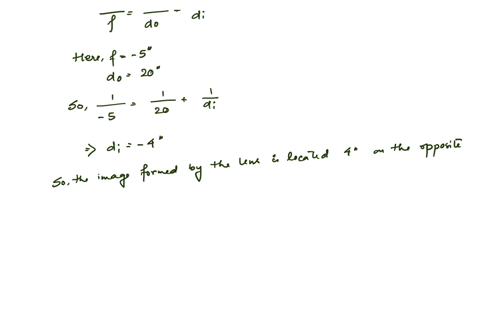 f = do - di
Here, f = -5"
do = 20"
So, 1/-5 = 1/20 + 1/di
=> di = -4"
So, the image formed by the lens is located 4" on the opposite